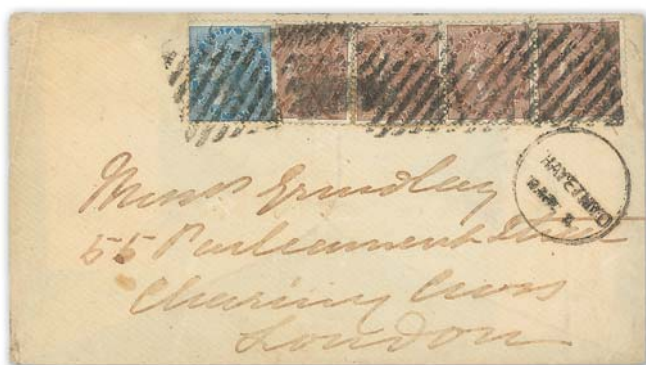 THAYETMYO
Messrs Grindlay
55 Parliament Street
Charing Cross
London